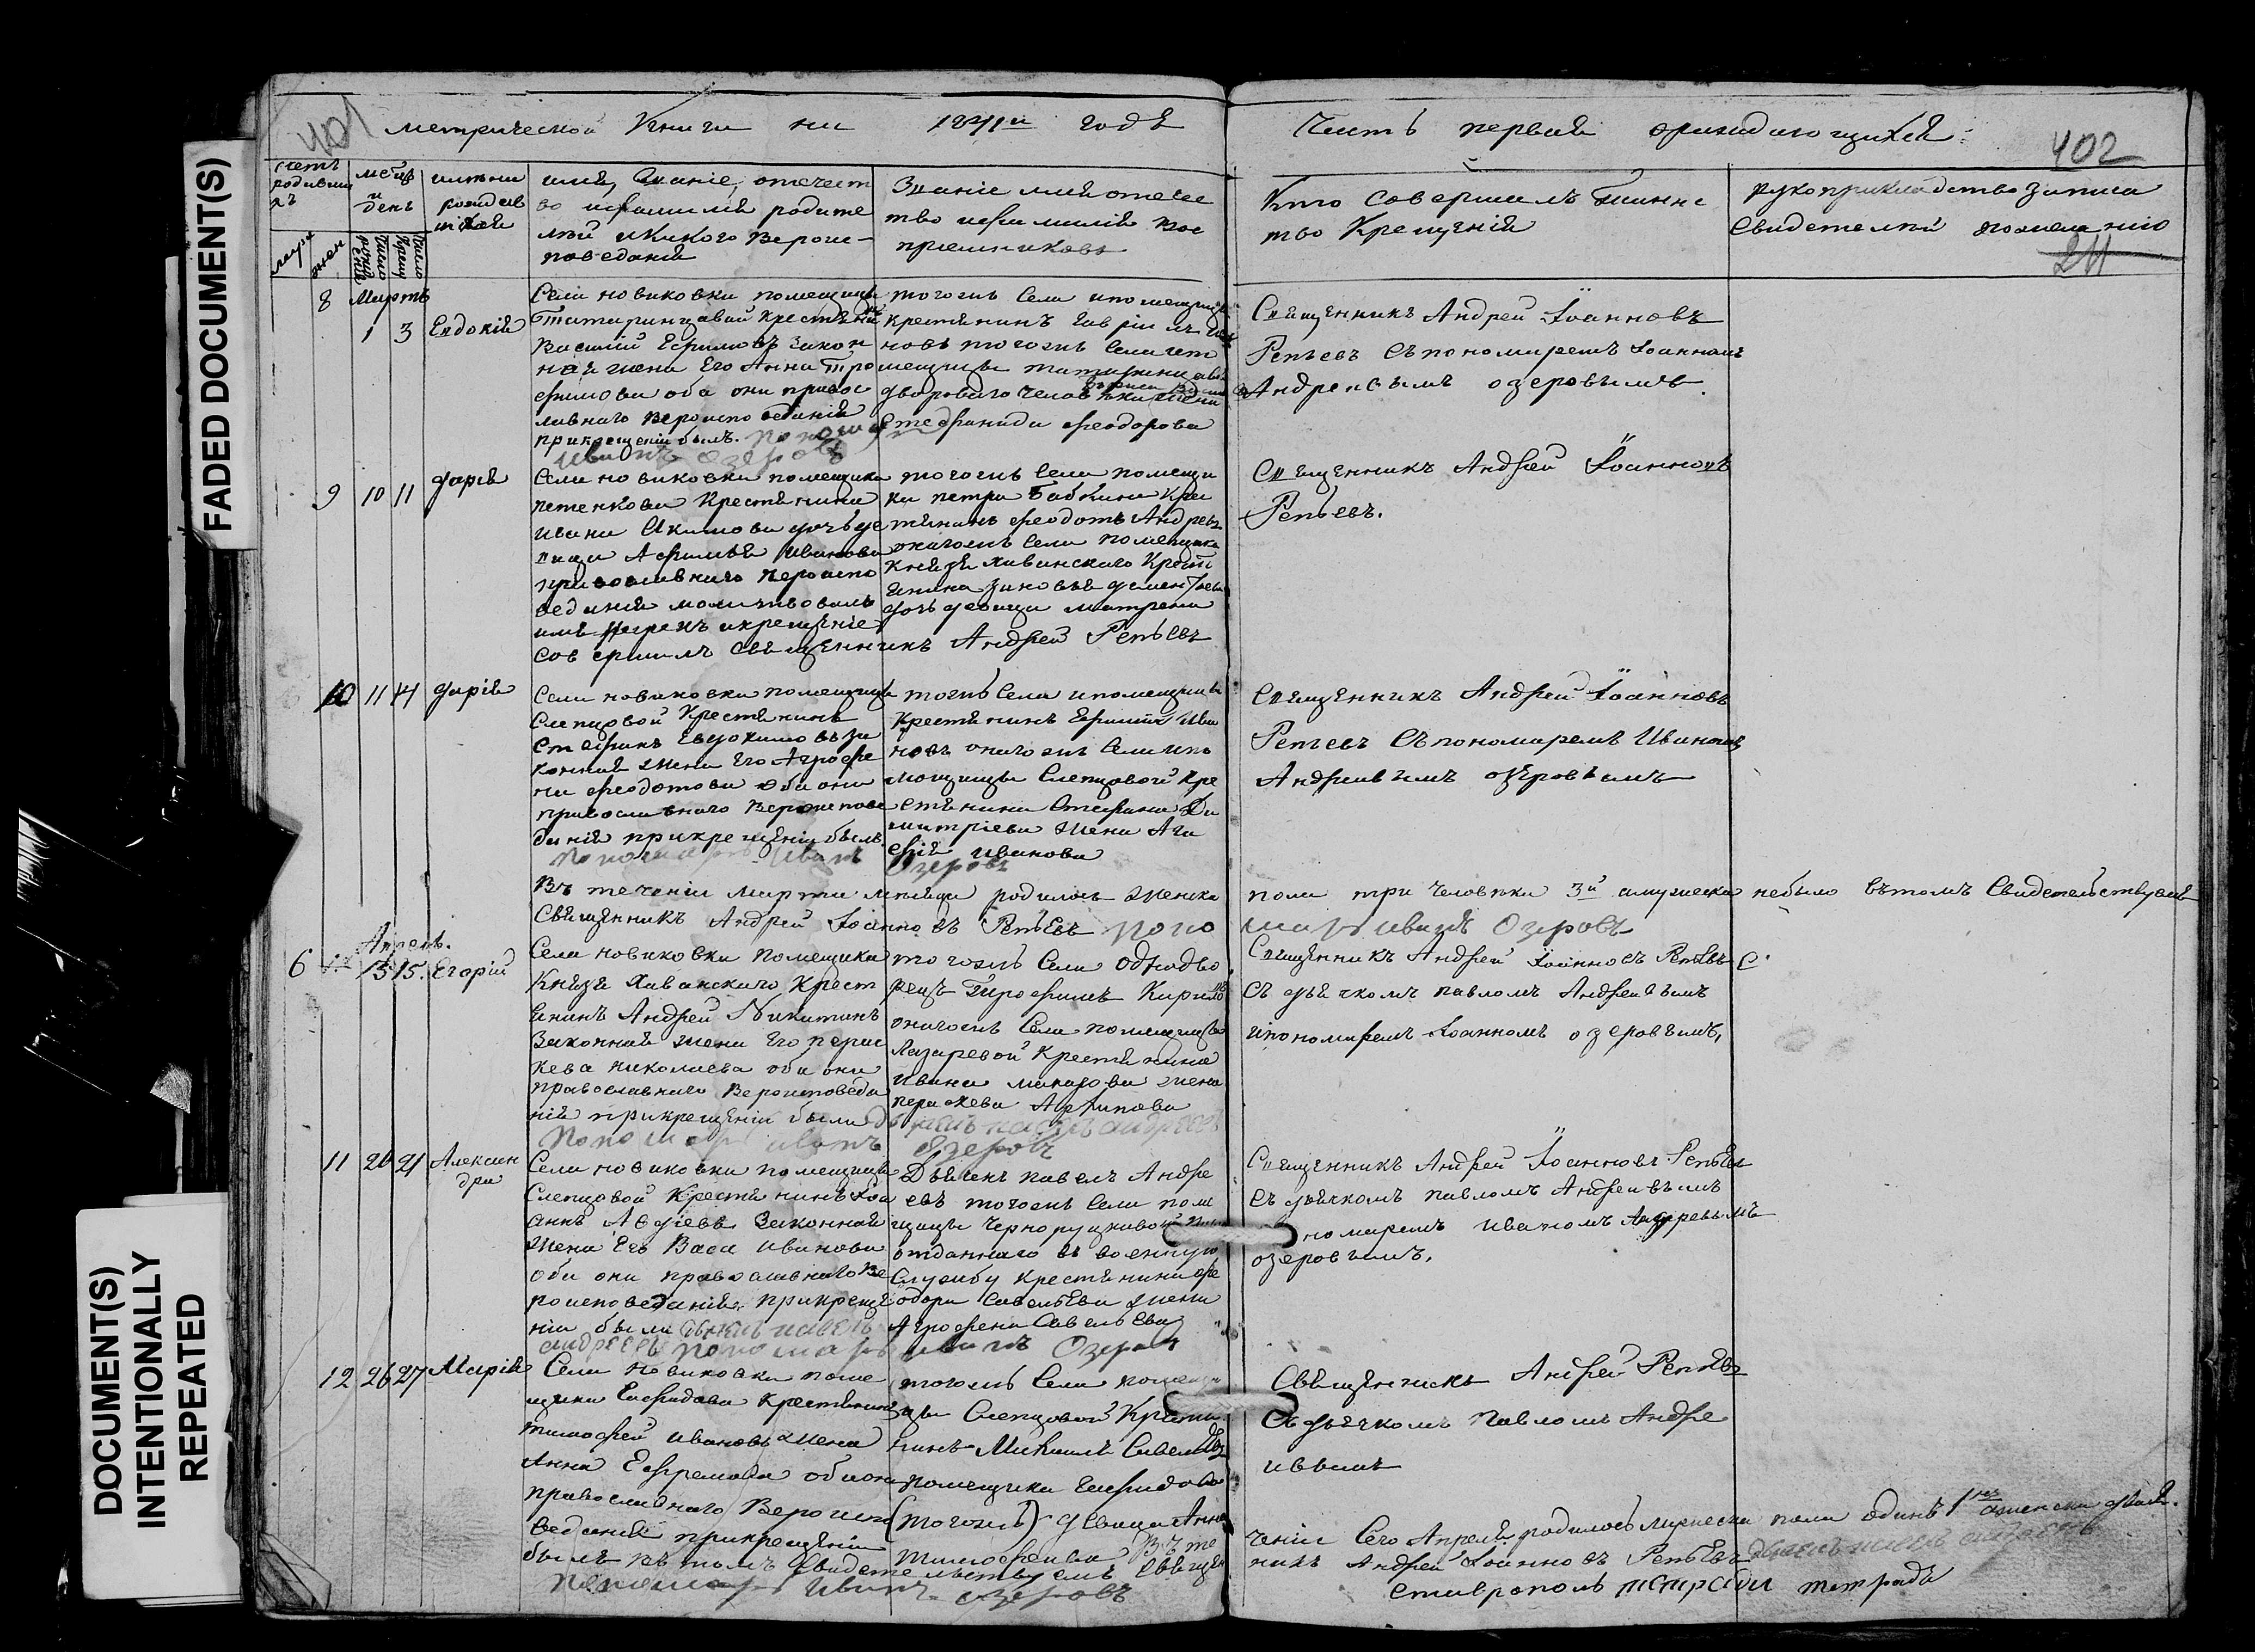 FADED DOCUMENT(S)
DOCUMENT(S)
INTENTIONALLY
REPEATED
401
метрической Книги на 1841й годъ
Часть первая о раждающихся
402
счетъ родивши хъ
муж
жен
месѣц и день
имена родив шихся
имя, Званіе, отечест
во ифамилія родите
лей икакого Вероис-
поведанія
Званіе имя отечес
тво ифамилія вос
приемниковъ
Кто Совершалъ Таинс
тво Крещенія
рукоприкладство записа
Свидетелей пожеланию
211
8 Мартъ
1 3 Евдокія
Села новиковки помещицы
Татаринцавай крестьянинъ
Василій Ефимовъ закон
ная жена Его Анна Тро
фимова оба они правос
лавнаго Вероисповеданія
прикрещеніи былъ. пономарь
Иванъ Озеровъ
тогожъ Села ипомещицы
крестьянинъ Гавріилъ
новъ тогожъ Села
мещицы татаринцавой
двороваго человека
Стефанида феодорова
Священникъ Андрей Іоанновъ
Репьевъ Съпономаремъ Іоанномъ
Андреевымъ озеровымъ
9 10 11 дарія
Села новиковки помещика
петенкова Крестьянина
ивана Акимова дочь де
вица Афимья иванова
православнаго вероиспо
веданія молитвовалъ
имя нарекъ икрещеніе
совершилъ Священникъ Андрей Репьевъ
тогожъ Села помещи
ка петра бабкина Крес
тьянинъ феодотъ Андреевъ
онагожъ Села помещика
Князя Хованскаго Крест
янина Зиновья дементьева
дочь девица матрена
Священникъ Андрей Іоанновъ
Репьевъ.
10 11 14 дарія
Села новиковки помещицы
Слепцовой Крестьянинъ
Стефанъ Евдокимовъ за
конная жена Его Агрофе
на феодотова оба они
православнаго Вероиспове
данія прикрещеніи былъ
пономарь иванъ Озеровъ
тогожъ Села ипомещицы
Крестьянинъ Ефимъ ива
новъ онагожъ Селаипо
мещицы Слепцовой Кре
стьянина Стефана Ди
митріева жена Ага
фія иванова
Священникъ Андрей Іоанновъ
Репьевъ Съпономаремъ Иваномъ
Андреивымъ озеровымъ
Въ теченіи марта месяца родилось женска пола три человека 3й амужеска небыло вътомъ Свидетельствуемъ
Священникъ Андрей Іоанновъ Репьевъ пономарь иванъ Озеровъ
Апрель.
6 13 15. Егорій
Села новиковки помещика
Князя Хованскаго Крест
янинъ Андрей Никитинъ
Законная жена Его парас
кева николаева оба они
православнаго Вероисповеда
нія прикрещеніи были дьячекъ павелъ андреевъ
пономарь иванъ Озеровъ
тогожъ Села Однодво
рецъ Трофимъ Кирило
онагожъ Села помещицы
Лазаревой Крестьянина
Ивана макарова жена
параскева Архипова
Священникъ Андрей Іоанновъ Репьевъ С
съ дьячкомъ павломъ Андреевымъ
ипономаремъ Іоанномъ озеровымъ,
11 20 21 Алексан
дра
Села новиковки помещицы
Слепцовой Крестьянинъ Іоа
аннъ Авдіевъ Законная
жена Его Васа иванова
оба они православнаго ве
роисповеданія. прикреще
ніи были дьячекъ павелъ
андреевъ пономарь иванъ Озеровъ
Дьячекъ павелъ Андре
евъ тогожъ Села поме
щицы Черноруцкавой
отданнаго въ военную
Службу крестьянина фе
одора Савельева жена
Агрофена Савельева
Священникъ Андрей Іоанновъ Репьевъ
съ дьячкомъ павломъ Андреивымъ
номаремъ иваномъ Андревымъ
озеровымъ.
12 26 27 Марія
Села новиковки поме
щика Крестьянинъ
тимофей ивановъ жена
Анна Ефремова оба они
православнаго Вероиспо
веданія прикрещеніи
былъ вътомъ Свидетельствуемъ Священ
пономарь Иванъ озеровъ
тогожъ Села помещи
цы Слепцовой Крестья
нинъ Михаилъ Савельевъ
помещика
(тогожъ) девица Анна
тимофеива Въте
Священникъ Андрей Репьевъ
Съдьячкомъ Павломъ Андре
ивымъ
ченіи Сего Апреля родилось мужеска пола одинъ 1 аженска двая.
никъ Андрей Іоанновъ Репьевъ дьячекъ павелъ андреевъ
тетрадь